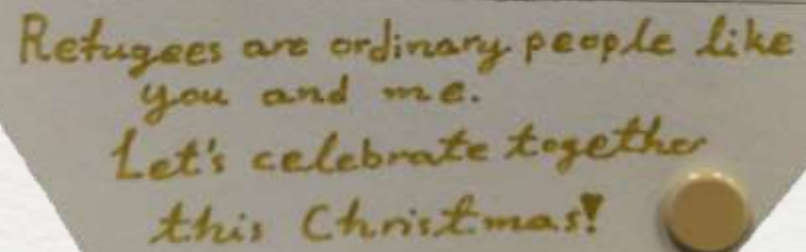 Refugees are ordinary people like
you and me.
Let's celebrate together
this Christmas!